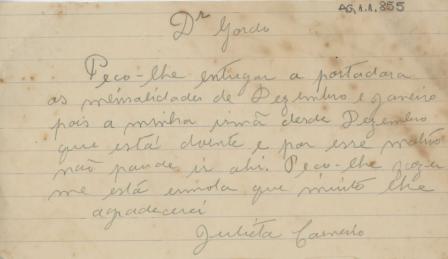 AG.1.1.855
Dr Gordo
Peco-lhe entregar a portadora
as mensalidades de Dezembro e Janeiro
pois a minha irmã desde Dezembro
que está doente e por esse motivo
não poude ir ahi. Peco-lhe fazer
me está esmola que muito lhe
agradecerei
Julieta Carneiro